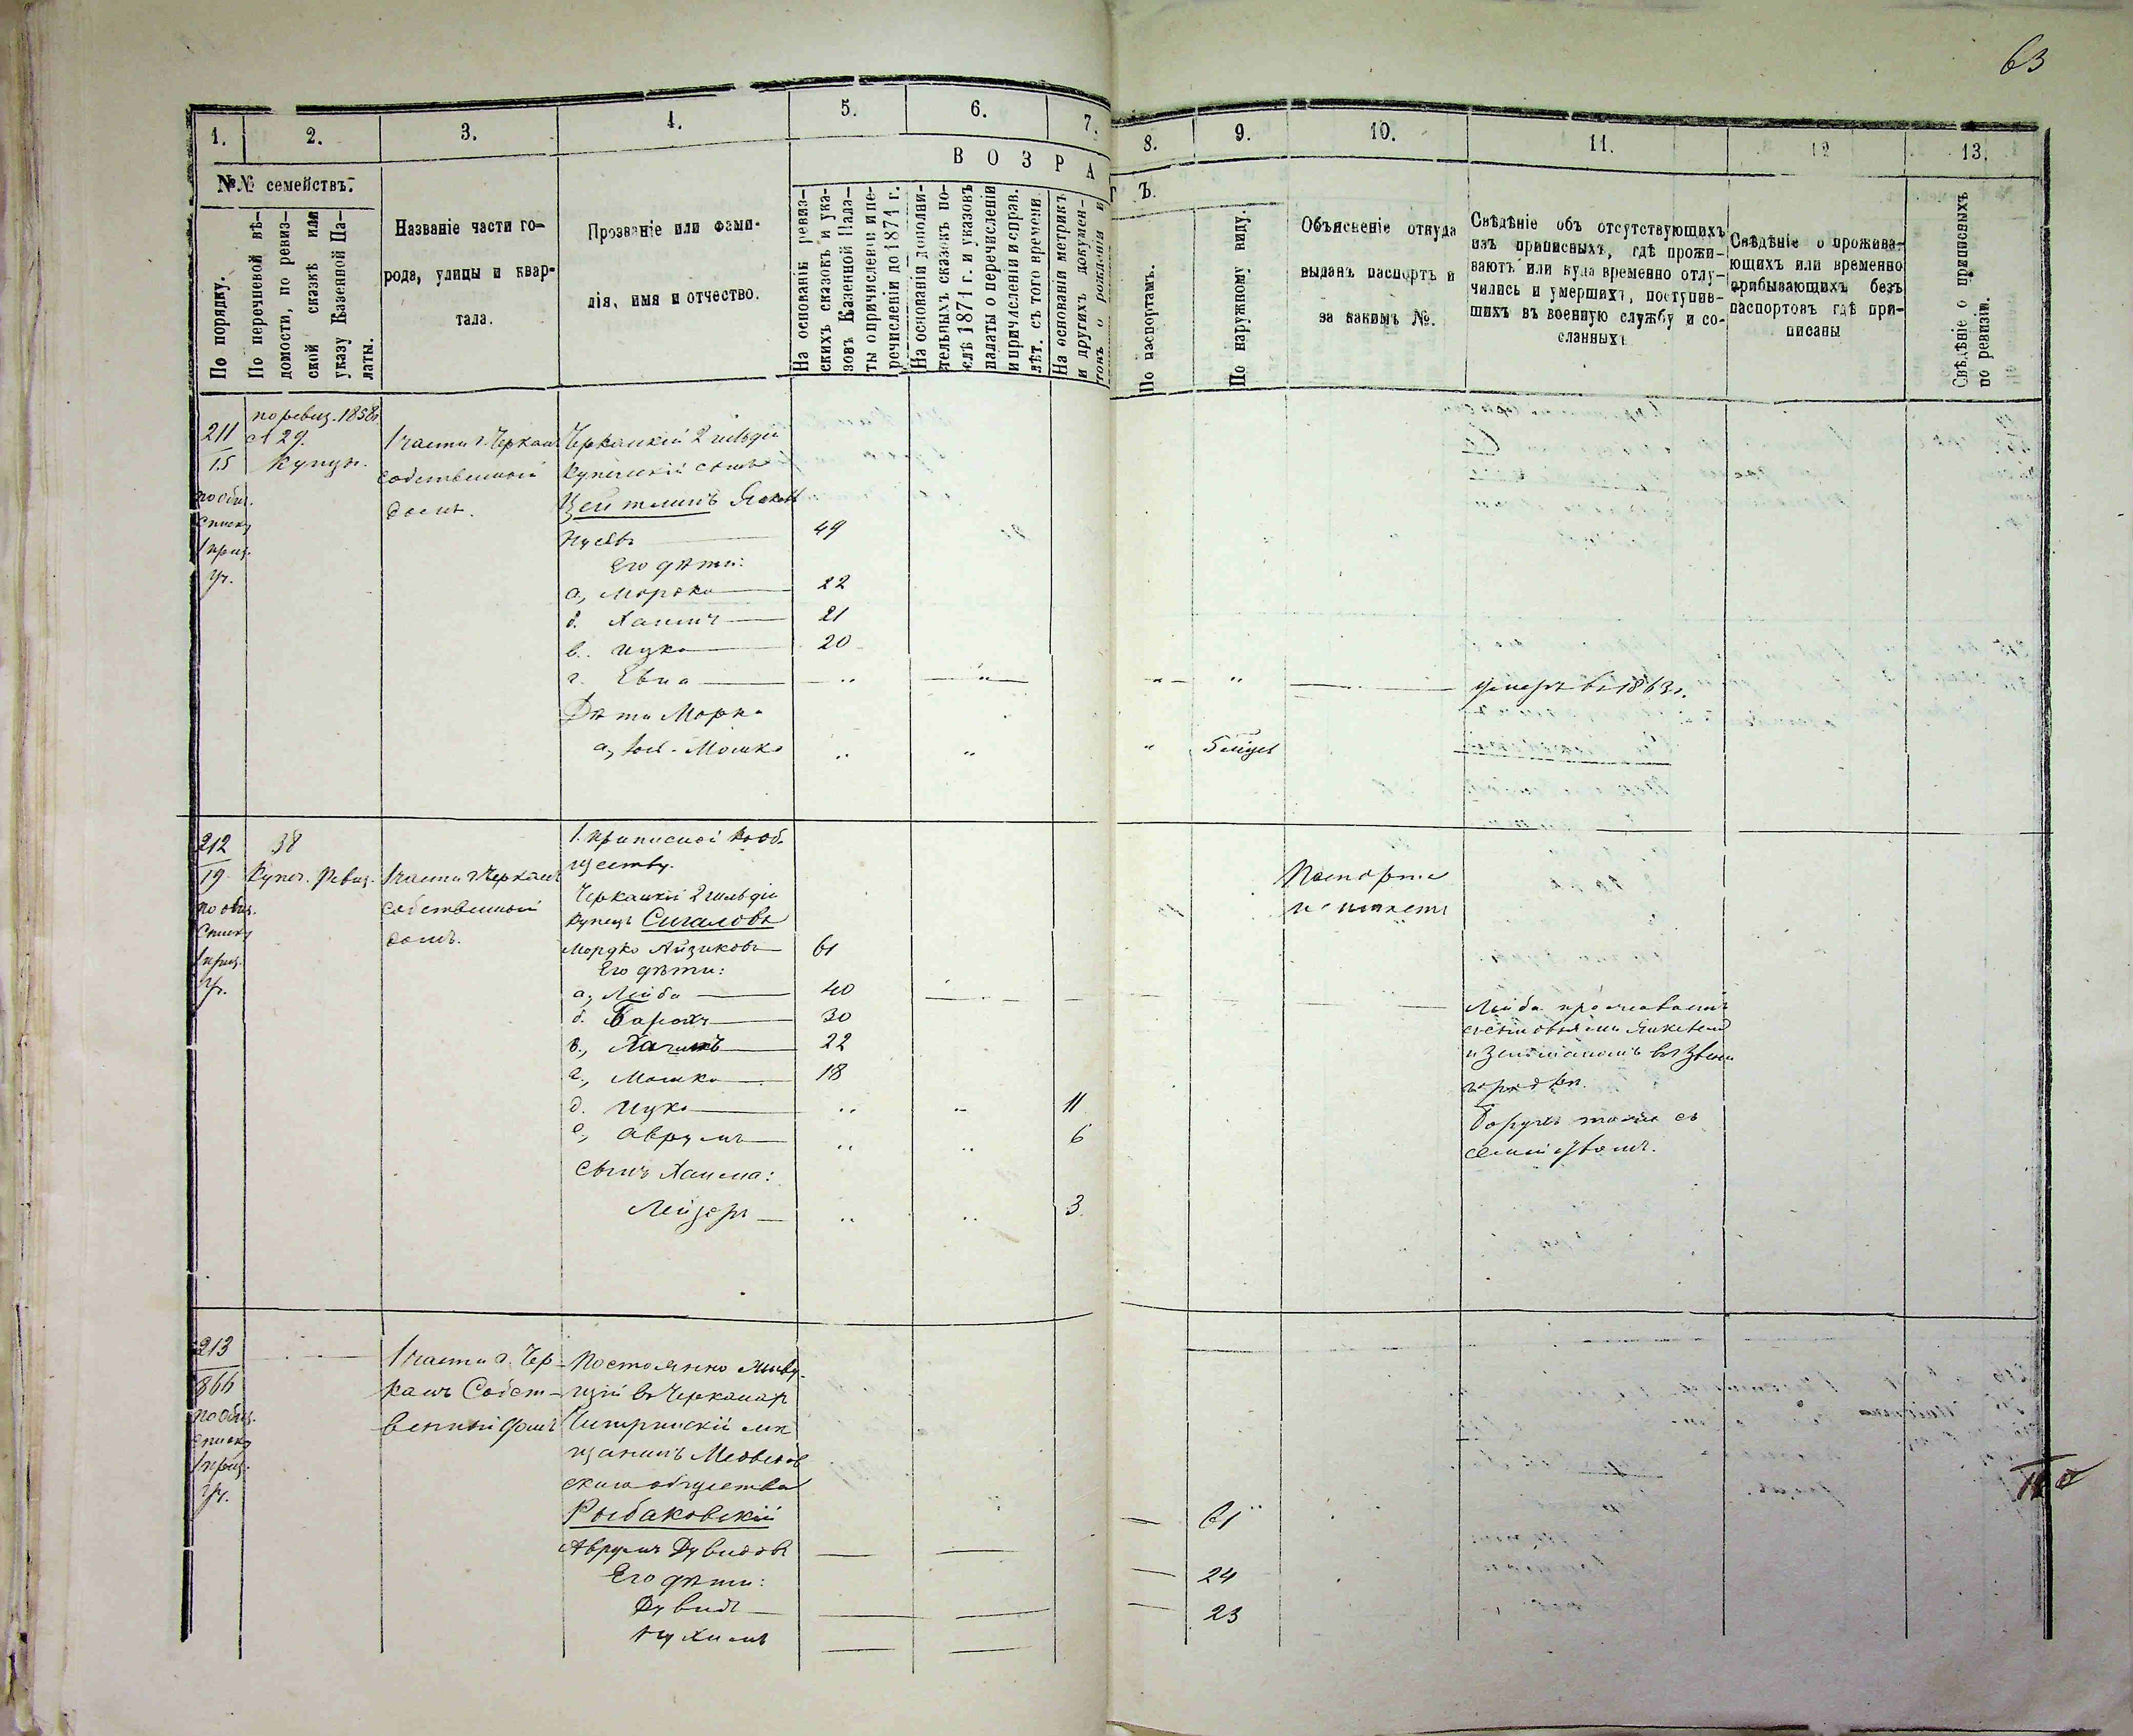 63
1.
2.
3.
4.
5.
6.
7.
8.
9.
10.
11.
12
13.
№№ семействъ.
В О З Р А
Т Ъ.
По порядку.
По перечневой вѣ-
домости, по ревиз-
ской сказкѣ или
указу Казенной Па-
латы.
Названіе части го-
рода, улицы и квар-
тала.
Прозваніе или фами-
лія, имя и отчество.
На основаніи ревиз-
скихъ сказокъ и ука-
зовъ Казенной Пала-
ты о причисленіи и пе-
речисленіи до 1871 г.
На основаніи дополни-
тельныхъ сказокъ по-
слѣ 1871 г. и указовъ
палаты о перечисленіи
и причисленіи и справ.
лѣт. съ того времени.
На основаніи метрикъ
и другихъ докумен-
товъ о рожденіи и
По паспортамъ.
По наружному виду.
Объясненіе откуда
выданъ паспортъ и
за какимъ №.
Свѣдѣніе объ отсутствующихъ
изъ приписныхъ, гдѣ прожи-
ваютъ или куда временно отлу-
чились и умершихъ, поступив-
шихъ въ военную службу и со-
сланныхъ
Свѣдѣніе о прожива-
ющихъ или временно
прибывающихъ безъ
паспортовъ гдѣ при-
писаны
Свѣдѣніе о приписныхъ
по ревизіи.
211
15
по общ.
списку
1 приз.
уч.
по ревиз. 1858г
№ 29.
Купцы.
1 части г. Черкасъ
собственный
домъ.
Черкаскій 2 гильдіи
Купеческій сынъ
Цейтлинъ Яковъ
49
Его дѣти:
а, Мордко 22
б. Хаимъ 21
в. Ицко 20
г. " " " " умеръ въ 1863г.
Дѣти Морд
а, Мошко " " "
212
19
по общ.
списку
1 приз.
уч.
38
Купеч. Ревиз.
1 части г. Черкасъ
собственный
домъ.
1. приписной къ об-
ществу.
Черкаскій 2 гильдіи
Купецъ Сигаловъ
Мордко Айзиковъ 61
Его дѣти:
а, Лейба 40
б. Барохъ 30
в., Хаимъ 22
г., Мошко 18
д. Ицко " " 11
е, Аврумъ " " 6
Сынъ Хаима:
Лейзеръ " " 3
Паспорта
не имѣетъ
Лейба проживаетъ
съ сыновьями
и въ Звени
городкѣ.
Борухъ тоже съ
семействомъ.
213
866
по общ.
списку
1 приз.
уч.
1 части г. Чер-
касъ Собст-
венный домъ
Постоянно живу-
щій въ Черкасах
Чигиринскій мѣ
щанинъ Медведов
скаго общества
Рыбаковскій
Аврумъ Дувидовъ 61
Его дѣти:
Дувидъ 24
Нухимъ 23